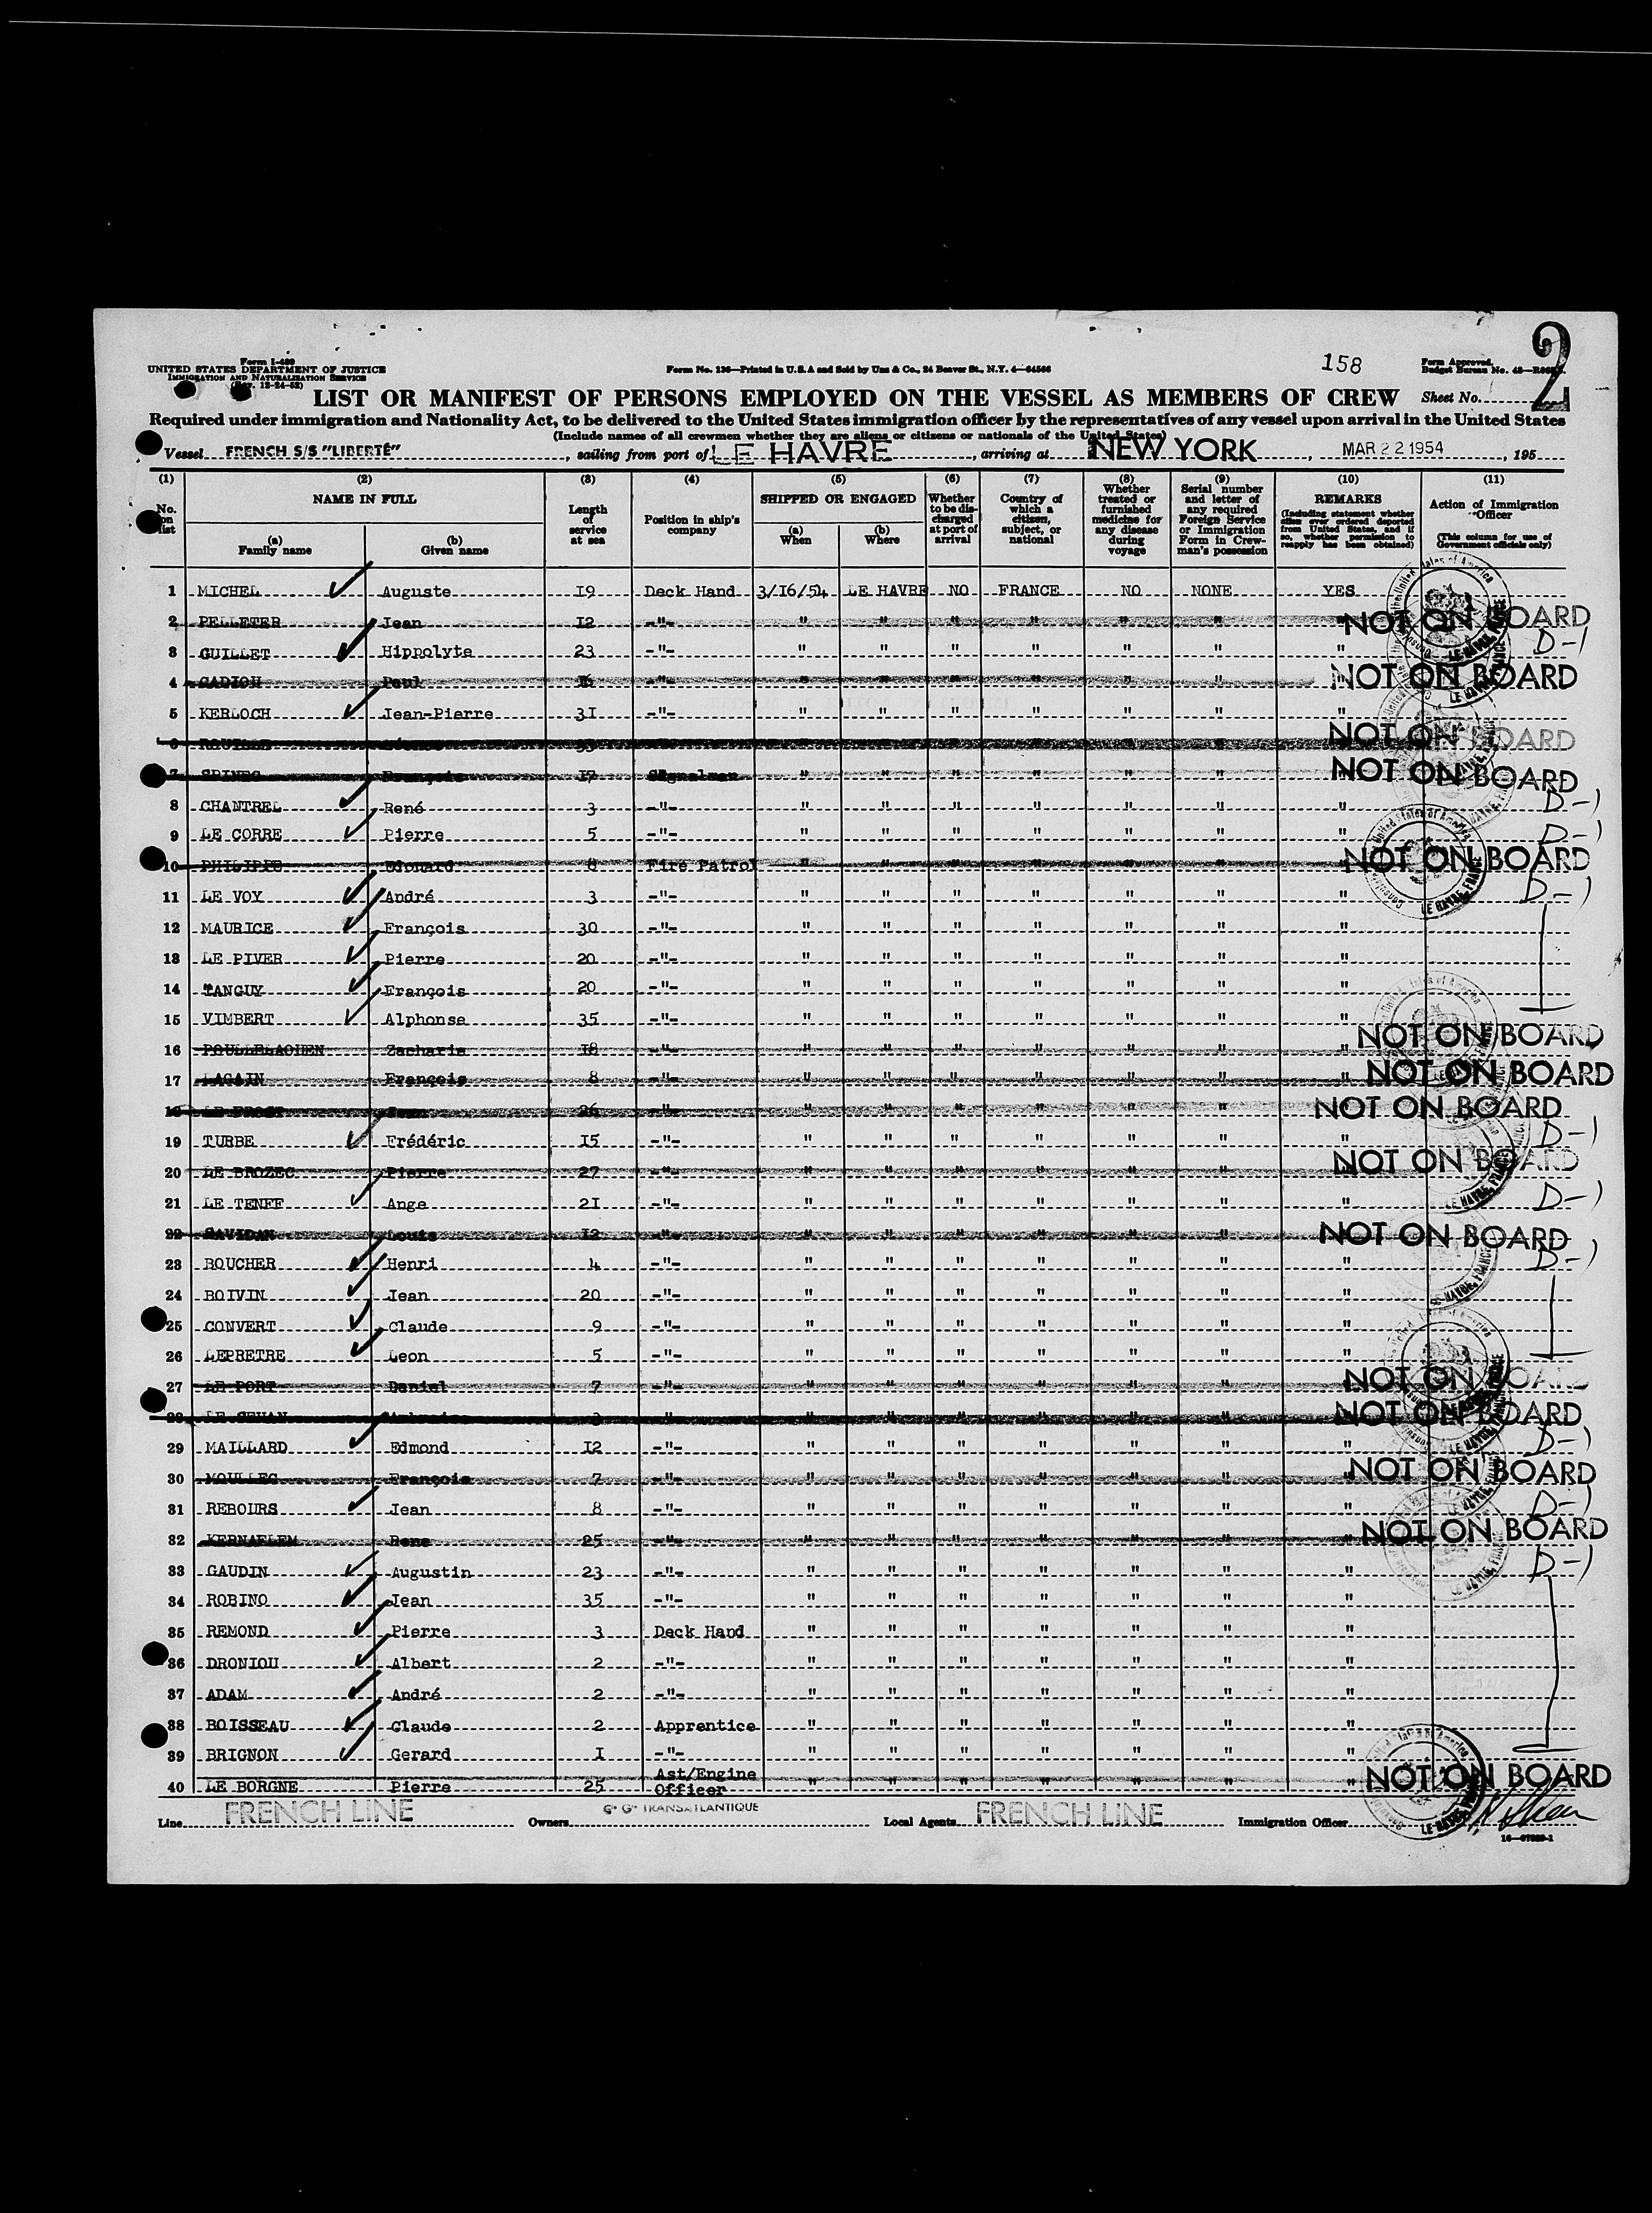 Form I-480
UNITED STATES DEPARTMENT OF JUSTICE
IMMIGRATION AND NATURALIZATION SERVICE
(Rev. 12-24-52)
Form No. 136—Printed in U.S.A and Sold by Unz & Co., 24 Beaver St., N.Y. 4—64566
158
Form Approved.
Budget Bureau No. 43—
LIST OR MANIFEST OF PERSONS EMPLOYED ON THE VESSEL AS MEMBERS OF CREW Sheet No. 2
Required under immigration and Nationality Act, to be delivered to the United States immigration officer by the representatives of any vessel upon arrival in the United States
(Include names of all crewmen whether they are aliens or citizens or nationals of the United States)
Vessel FRENCH S/S "LIBERTÉ", sailing from port of LE HAVRE, arriving at NEW YORK, MAR 22 1954, 195
(1) (2) (3) (4) (5) (6) (7) (8) (9) (10) (11)
No. on list
NAME IN FULL
(a) Family name
(b) Given name
Length of service at sea
Position in ship's company
SHIPPED OR ENGAGED
(a) When
(b) Where
Whether to be discharged at port of arrival
Country of which a citizen, subject, or national
Whether treated or furnished medicine for any disease during voyage
Serial number and letter of any required Foreign Service or Immigration Form in Crewman's possession
REMARKS
(Including statement whether alien ever ordered deported from United States, and if so, whether permission to reapply has been obtained)
Action of Immigration Officer
(This column for use of Government officials only)
1 MICHEL Auguste 19 Deck Hand 3/16/54 LE HAVRE NO FRANCE NO NONE YES
2 PELLETER Jean 12 -"- " " " " " " " NOT ON BOARD
3 GUILLET Hippolyte 23 -"- " " " " " " " D-1
4 CADIOU Paul 16 -"- " " " " " " " NOT ON BOARD
5 KERLOCH Jean-Pierre 31 -"- " " " " " " "
6 NOT ON BOARD
7 SPINEC François 17 Signalman " " " " " " " NOT ON BOARD
8 CHANTREL René 3 -"- " " " " " " " D-1
9 LE CORRE Pierre 5 -"- " " " " " " " D-1
10 PHILIPPE Edouard 8 Fire Patrol " " " " " " " NOT ON BOARD
11 LE VOY André 3 -"- " " " " " " " D-1
12 MAURICE François 30 -"- " " " " " " "
13 LE PIVER Pierre 20 -"- " " " " " " "
14 TANGUY François 20 -"- " " " " " " "
15 VIMBERT Alphonse 35 -"- " " " " " " "
16 POULLELAOUEN Zacharie 18 -"- " " " " " " " NOT ON BOARD
17 LAGAIN François 8 -"- " " " " " " " NOT ON BOARD
18 LE PROST Jean 26 -"- " " " " " " " NOT ON BOARD
19 TURBE Frédéric 15 -"- " " " " " " " D-1
20 LE BROZEC Pierre 27 -"- " " " " " " " NOT ON BOARD
21 LE TENFF Ange 21 -"- " " " " " " " D-1
22 SAVIDAN Louis 12 -"- " " " " " " " NOT ON BOARD
23 BOUCHER Henri 4 -"- " " " " " " " D-1
24 BOIVIN Jean 20 -"- " " " " " " "
25 CONVERT Claude 9 -"- " " " " " " "
26 LEPRETRE Leon 5 -"- " " " " " " "
27 LE PORT Daniel 7 -"- " " " " " " " NOT ON BOARD
28 LE SEHAN 3 -"- " " " " " " " NOT ON BOARD
29 MAILLARD Edmond 12 -"- " " " " " " " D-1
30 MOULLEC François 7 -"- " " " " " " " NOT ON BOARD
31 REBOURS Jean 8 -"- " " " " " " " D-1
32 KERNAFLEM Rene 25 -"- " " " " " " " NOT ON BOARD
33 GAUDIN Augustin 23 -"- " " " " " " " D-1
34 ROBINO Jean 35 -"- " " " " " " "
35 REMOND Pierre 3 Deck Hand " " " " " " "
36 DRONIOU Albert 2 -"- " " " " " " "
37 ADAM André 2 -"- " " " " " " "
38 BOISSEAU Claude 2 Apprentice " " " " " " "
39 BRIGNON Gerard 1 -"- " " " " " " "
40 LE BORGNE Pierre 25 Ast/Engine Officer " " " " " " " NOT ON BOARD
Line FRENCH LINE Owners Cie Gle TRANSATLANTIQUE Local Agents FRENCH LINE Immigration Officer